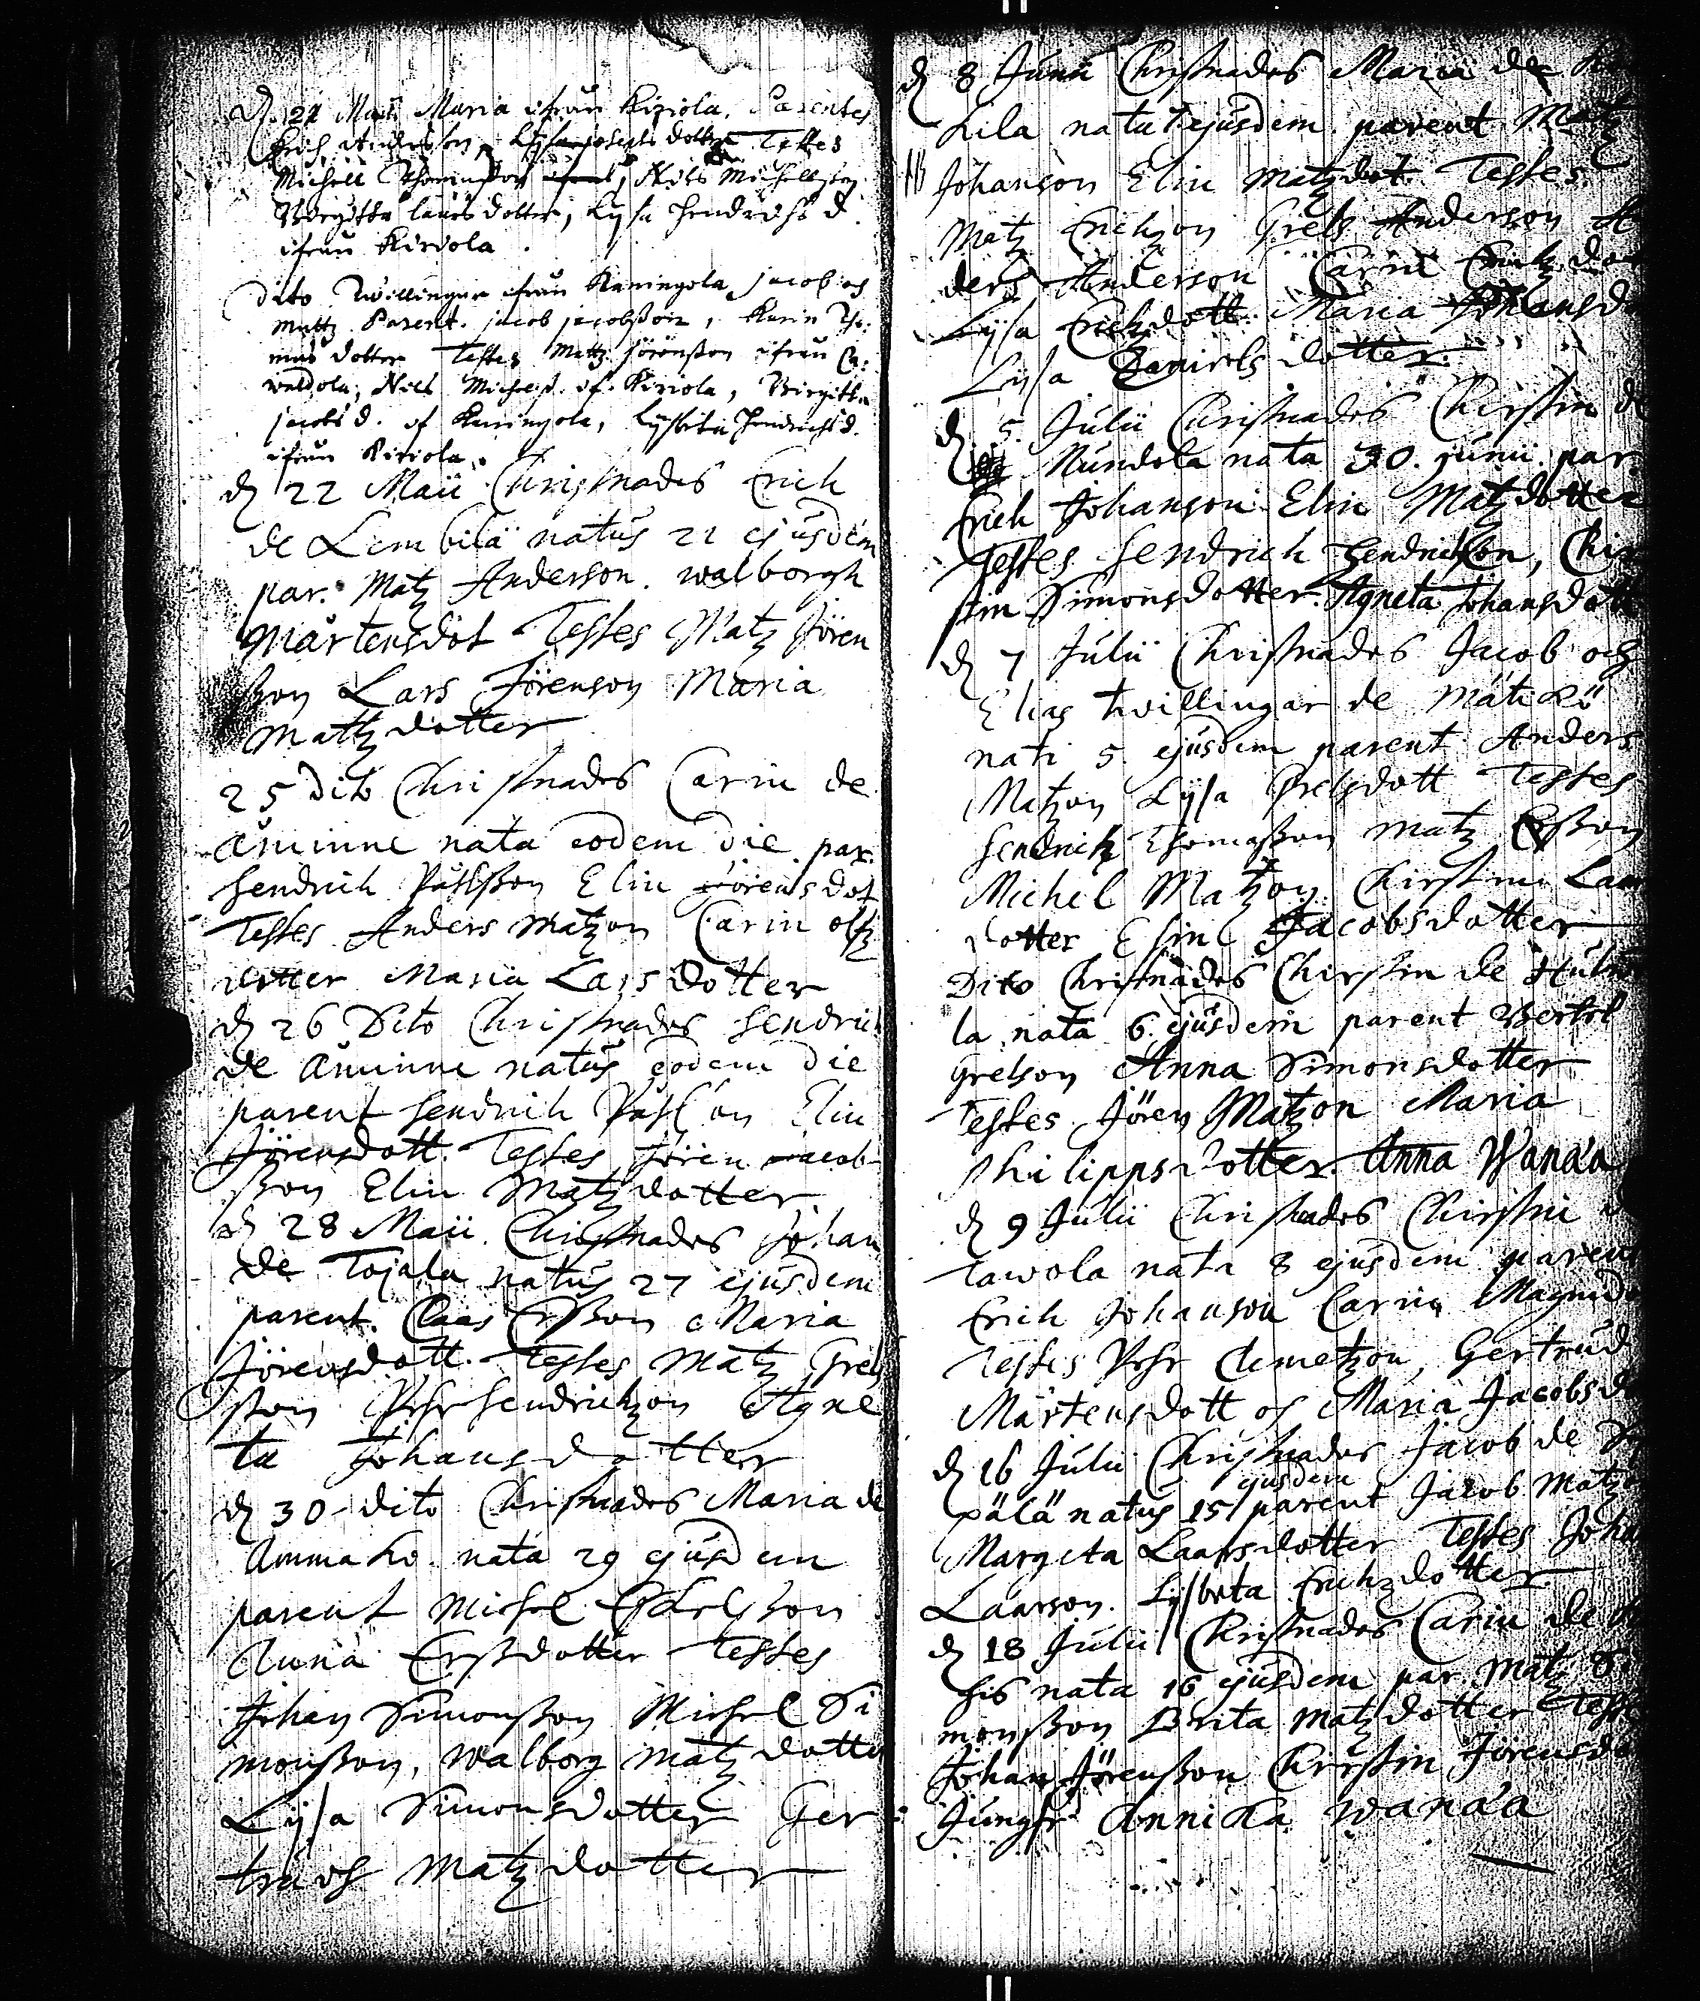 D. 21 Maii Maria ifrån Kiriola. Parentes
Erich Andersson, Lysa Josephs dotter Testes
Michell Thomasson, Nils Michellson
Birgitta lauris dotter, Lysa Hendrichs d.
ifrån Kiriola.
Dito Twillingar ifrån Kaningola Jacob och
Mattz Parent. Jacob Jacobsson, Karin Tho-
mas dotter Testes Mattz Jörensson ifrån
waldola, Nils Michels. of Kiriola, Birgitta
Jacobs d. of Kaningola, Lysbeta Hendrichs d.
ifrån Kiriola.
D 22 Maii Christnades Erich
de Lembilä natus 21 ejusdem
par. Matz Anderson. Walborgh
Mårtensdot Testes Matz Jören
sson Lars Jörenson Maria
Mattz dotter
25 Dito Christnades Carin de
Åminne nata eodem die par.
Hendrich Påhlsson Elin Jörensdot
Testes Anders Matzon Carin olfz
dotter Maria Lars dotter
D 26 Dito Christnades Hendrich
de Åminne natus eodem die
parent Hendrich Påhlson Elin
Jörensdott. Testes Jören Jacob-
sson Elin Matz dotter
D 28 Maii Christnades Johan
de Tojala natus 27 ejusdem
parent. Claas Ersson Maria
Jörensdott. Testes Matz Grels
sson Pehr Hendrichzon Agne
ta Johansdotter
D 30 dito Christnades Maria de
Ammako. nata 29 ejusdem
parent Michel Eskelsson
Anna Ersdotter Testes
Johan Simonsson Michel Si
monsson, Walborg Matz dotter
Lysa Simonsdotter Ger
tru och Matz dotter
D 8 Junii Christnades Maria de
kila nata 7 ejusdem parent Matz
Johanson Elin Matzdot Testes.
Matz Erichzon Grels Anderson
ders Anderson Carin Erichz dott
Lysa Erichzdott. Maria Johansdo
Lysa Danirels dotter.
D. 5 Julii Christnades Chirstin de
Nundola nata 30. junii par.
Erich Johanson Elin Matzdotter
Testes Hendrich Hendrichson, Chir
stin Simonsdotter. Agneta Johansdott
D 7 Julii Christnades Jacob och
Elias twillingar de Matikö
nati 5 ejusdem parent Anders
Matzon Lysa Grelsdott Testes
Hendrich Thomasson Matz Ersson
Michel Matzon Chirstin Lars
dotter Elin Jacobsdotter
Dito Christnades Chirstin de
la nata 6 ejusdem parent Bertel
Grelson Anna Simonsdotter
Testes Jören Matzon Maria
Philippsdotter. Anna Wanäa
D 9 Julii Christnades Chirstin
Tawola nata 8 ejusdem parent
Erich Johanson Carin Magnido
Testes Pehr Clemetzon, Gertrud
Mårtensdott och Maria Jacobsdo
D 16 Julii Christnades Jacob de
ejusdem
pälä natus 15 parent Jacob Matzo
Margeta Laarsdotter Testes Johan
Laarson. Lysbeta Erichzdotter
D 18 Julii Christnades Carin de
his nata 16 ejusdem par. Matz Si
monsson Brita Matz dotter Teste
Johan Jörensson Chirstin Jörensdo
Jungfr Annika Wanäa